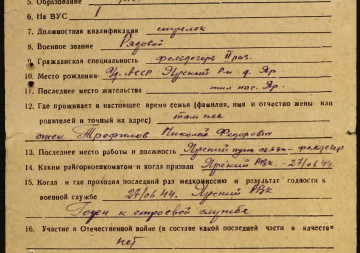 5. Образование
6. На ВУС 1
7. Должностная квалификация стрелок
8. Военное звание Рядовой
9. Гражданская специальность фельдъегерь
10. Место рождения Уд. АССР Ярский р-н д. Яр.
11. Последнее место жительства пос. Яр.
12. Где проживает в настоящее время семья (фамилия, имя и отчество жены или
родителей и точный их адрес) там же
отец Трефилов Николай Федорович
13. Последнее место работы и должность Ярский
14. Каким райгорвоенкоматом и когда призван Ярский РВК. - 27/об 44.
15. Когда и где проходил последний раз медкомиссию и результат годности к
военной службе 27/об 44. Ярский РВК
Годен к строевой службе
16. Участие в Отечественной войне (в составе какой последней части и качеств
нет